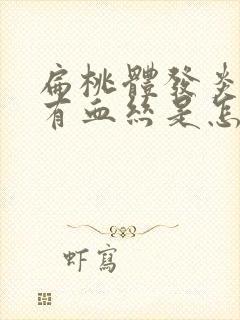 扁桃體發炎
有血絲是怎
虾寫